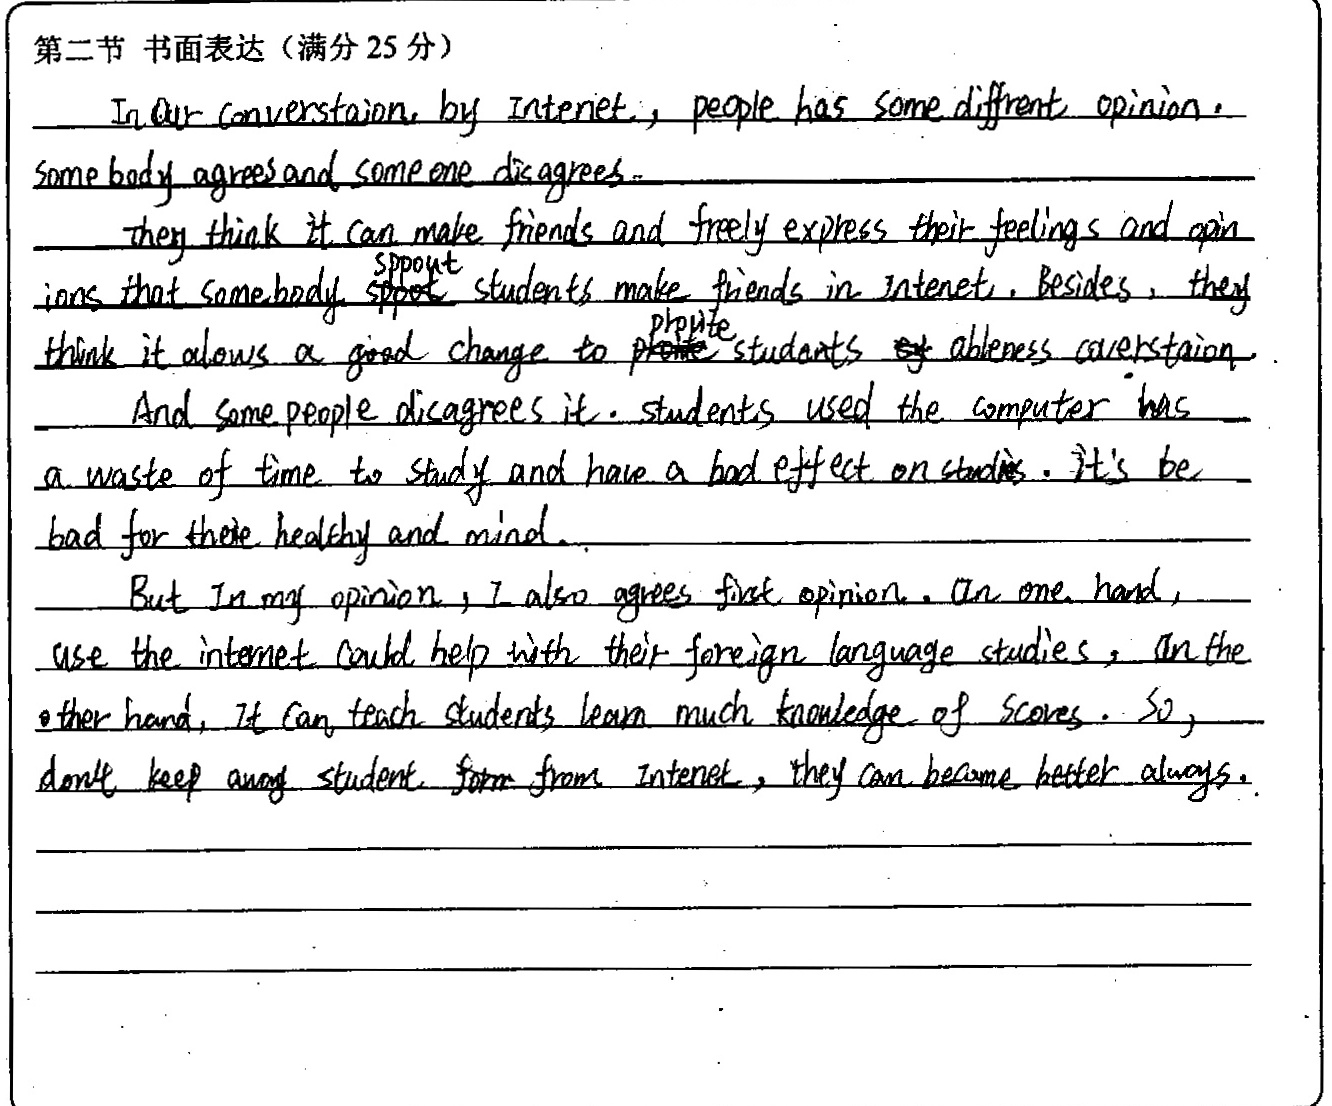 第二节 书面表达（满分 25 分）
In our converstaion. by Intenet, people has some diffrent opinion.
somebody agrees and someone disagrees.
They think it can make friends and freely express their feelings and opin
sppout
ions that somebody students make friends in Intenet. Besides, they
provite
think it alows a good change to students ableness coverstaion.
And some people disagrees it. students used the computer has
a waste of time to study and have a bad effect on studies. it's be
bad for their healthy and mind.
But In my opinion, I also agrees first opinion. On one hand,
use the internet could help with their foreign language studies, On the
other hand, It can teach students learn much knowledge of scores. So,
don't keep away student from Intenet, they can become better always.